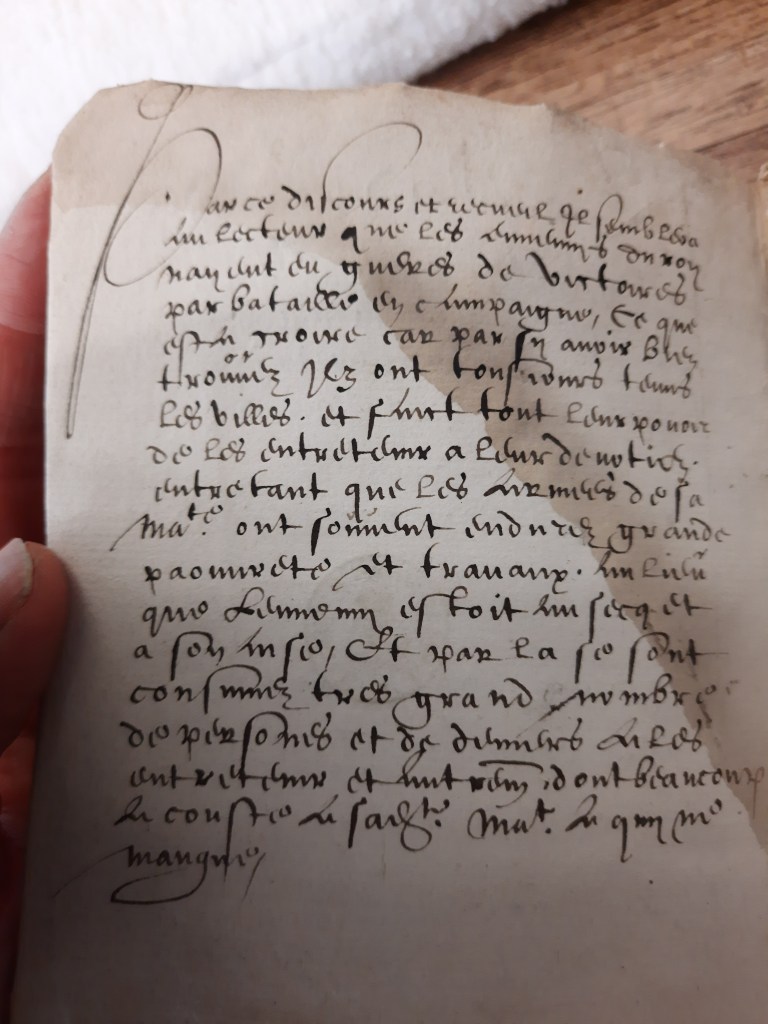 Par ce discours et recueil Il semblera
au lecteur que les ennemis du roy
nayent eu gueres de victoires
par bataille en campaigne, Ce que
est a croire car par sy avoir bien
trouvez Ilz ont tousiours tenus
les villes. et faict tout leur povoir
de les entretenir a leur devotion.
entretant que les armees de sa
Ma.te ont souvent endurez grande
paouvrete et travaux. Au lieu
que lennemy estoit au secq et
a son aise, Et par la se sont
consumez tres grand nombre
de personnes et de deniers a les
entretenir et autrem. dont beaucoup
a couste a sad.te Mat. a qui ne
manque,